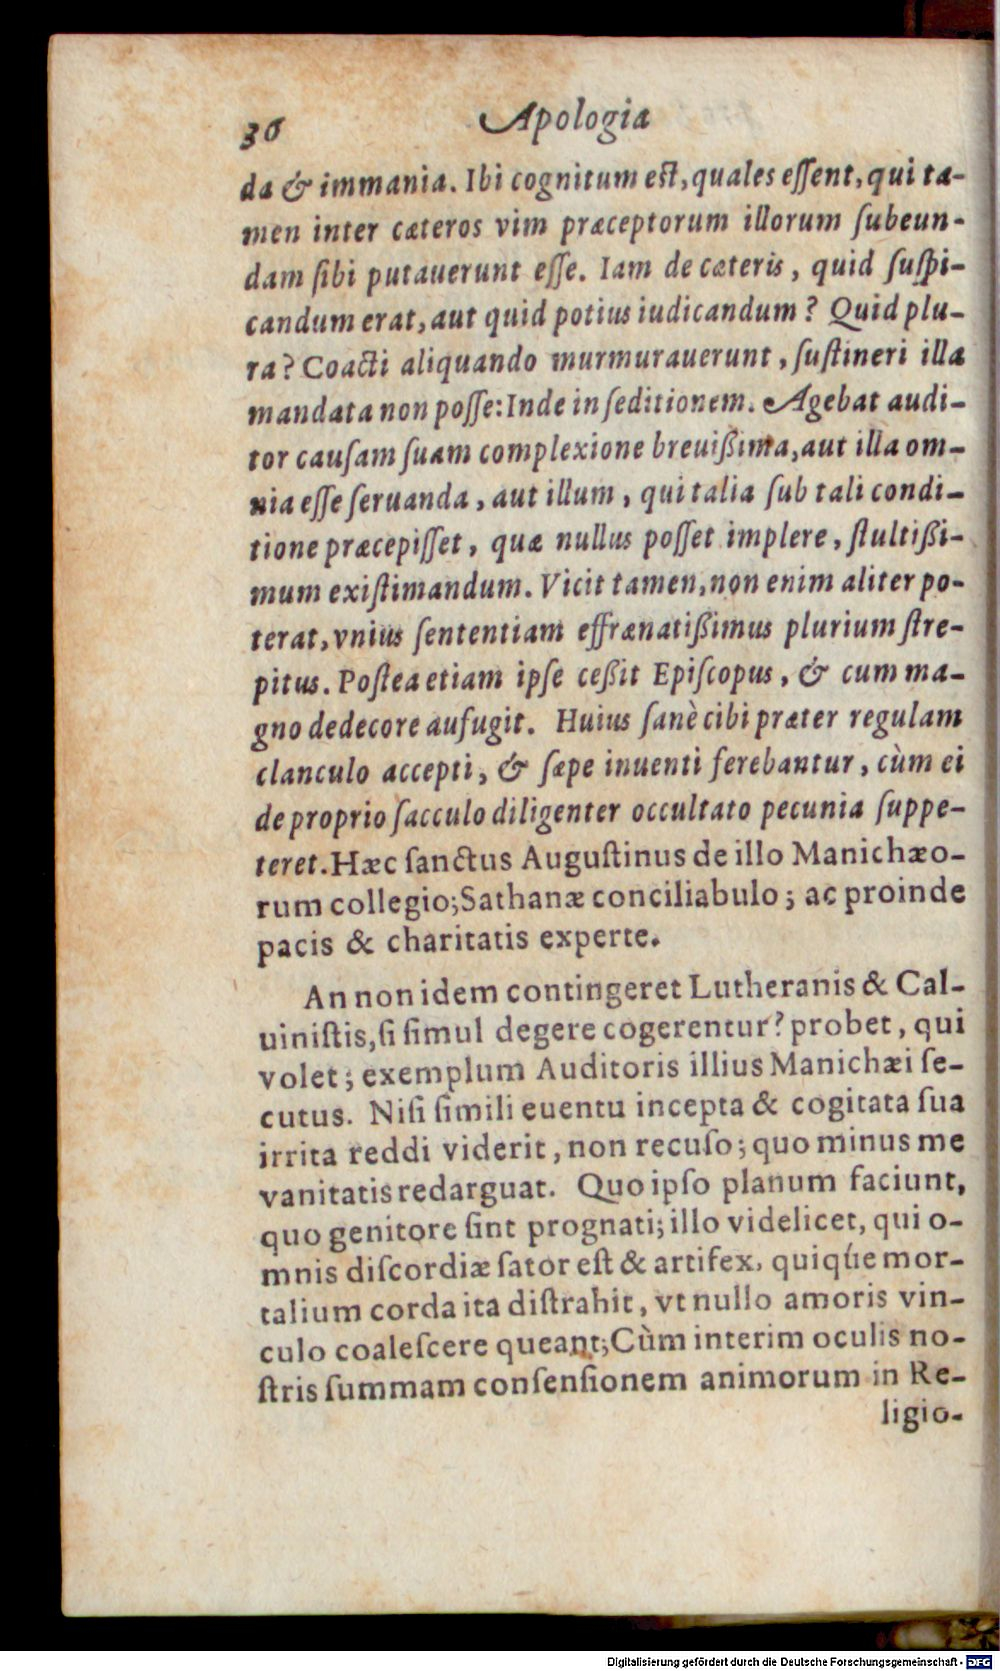 36 Apologia
da & immania. Ibi cognitum est, quales eſſent, qui ta-
men inter cæteros vim præceptorum illorum ſubeun-
dam ſibi putauerunt eſſe. Iam de cæteris, quid ſuſpi-
candum erat, aut quid potius iudicandum? Quid plu-
ra? Coacti aliquando murmurauerunt, ſuſtineri illa
mandata non poſſe: Inde in ſeditionem. Agebat audi-
tor cauſam ſuam complexione breuißima, aut illa om-
nia eſſe ſeruanda, aut illum, qui talia ſub tali condi-
tione præcepiſſet, quæ nullus poſſet implere, ſtultißi-
mum exiſtimandum. Vicit tamen, non enim aliter po-
terat, vnius ſententiam effrænatißimus plurium ſtre-
pitus. Poſtea etiam ipſe ceßit Epiſcopus, & cum ma-
gno dedecore aufugit. Huius ſanè cibi præter regulam
clanculo accepti, & ſæpe inuenti ferebantur, cùm ei
de proprio ſacculo diligenter occultato pecunia ſuppe-
teret. Hæc ſanctus Auguſtinus de illo Manichæo-
rum collegio; Sathanæ conciliabulo; ac proinde
pacis & charitatis experte.
An non idem contingeret Lutheranis & Cal-
uiniſtis, ſi ſimul degere cogerentur? probet, qui
volet; exemplum Auditoris illius Manichæi ſe-
cutus. Niſi ſimili euentu incepta & cogitata ſua
irrita reddi viderit, non recuſo; quo minus me
vanitatis redarguat. Quo ipſo planum faciunt,
quo genitore ſint prognati; illo videlicet, qui o-
mnis diſcordiæ ſator eſt & artifex, quiq́ue mor-
talium corda ita diſtrahit, vt nullo amoris vin-
culo coaleſcere queant; Cùm interim oculis no-
ſtris ſummam conſenſionem animorum in Re-
ligio-
Digitalisierung gefördert durch die Deutsche Forschungsgemeinschaft - DFG